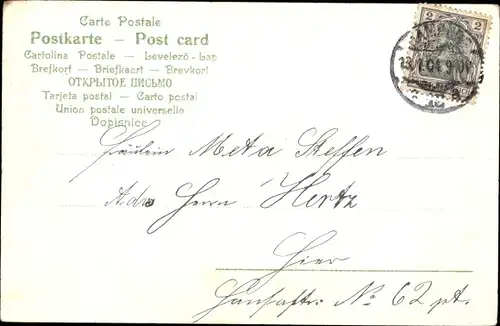 Carte Postale
Postkarte — Post card
Cartolina Postale — Levelezö-Lap
Brefkort — Briefkaart — Brevkort
ОТКРЫТОЕ ПИСЬМО
Tarjeta postal — Carto postal
Union postale universelle
Dopisnice
2 2
Fräulein Meta Steffen
Adr. Herrn Hertz
Hier
No 62 pt.